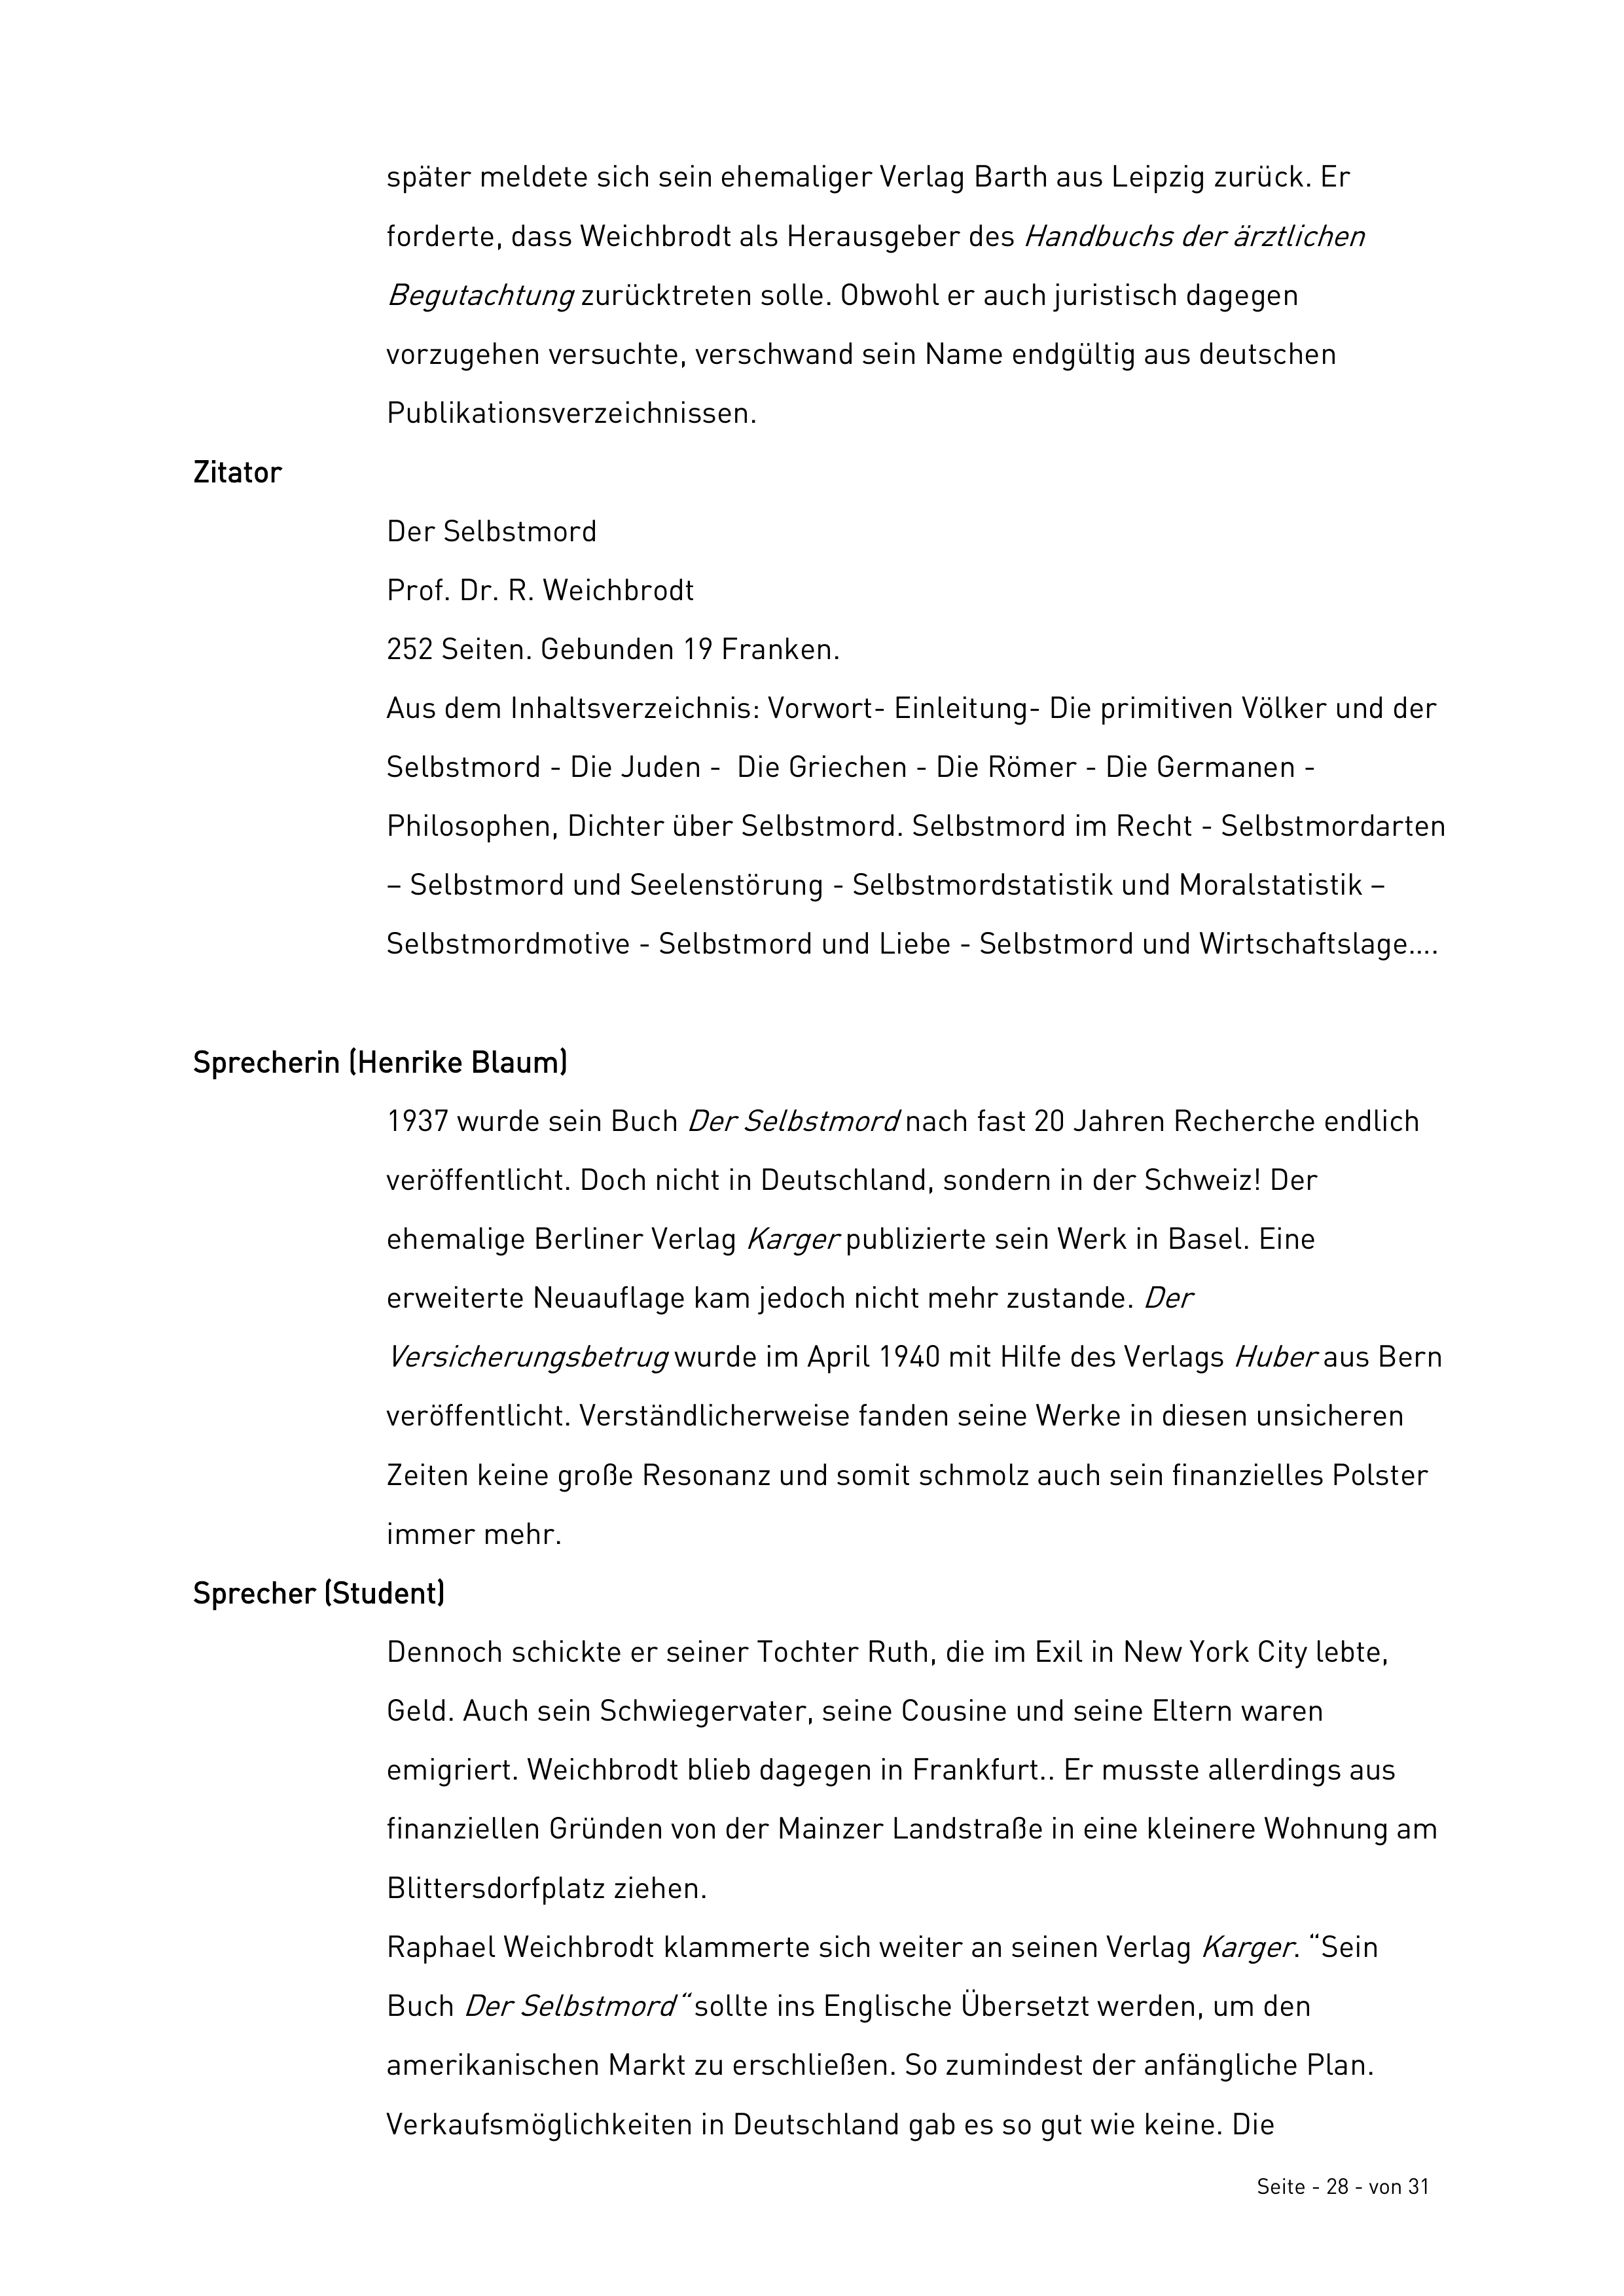 später meldete sich sein ehemaliger Verlag Barth aus Leipzig zurück. Er
forderte, dass Weichbrodt als Herausgeber des Handbuchs der ärztlichen
Begutachtung zurücktreten solle. Obwohl er auch juristisch dagegen
vorzugehen versuchte, verschwand sein Name endgültig aus deutschen
Publikationsverzeichnissen.
Zitator
Der Selbstmord
Prof. Dr. R. Weichbrodt
252 Seiten. Gebunden 19 Franken.
Aus dem Inhaltsverzeichnis: Vorwort- Einleitung- Die primitiven Völker und der
Selbstmord - Die Juden -  Die Griechen - Die Römer - Die Germanen -
Philosophen, Dichter über Selbstmord. Selbstmord im Recht - Selbstmordarten
– Selbstmord und Seelenstörung - Selbstmordstatistik und Moralstatistik –
Selbstmordmotive - Selbstmord und Liebe - Selbstmord und Wirtschaftslage....
Sprecherin (Henrike Blaum)
1937 wurde sein Buch Der Selbstmord nach fast 20 Jahren Recherche endlich
veröffentlicht. Doch nicht in Deutschland, sondern in der Schweiz! Der
ehemalige Berliner Verlag Karger publizierte sein Werk in Basel. Eine
erweiterte Neuauflage kam jedoch nicht mehr zustande. Der
Versicherungsbetrug wurde im April 1940 mit Hilfe des Verlags Huber aus Bern
veröffentlicht. Verständlicherweise fanden seine Werke in diesen unsicheren
Zeiten keine große Resonanz und somit schmolz auch sein finanzielles Polster
immer mehr.
Sprecher (Student)
Dennoch schickte er seiner Tochter Ruth, die im Exil in New York City lebte,
Geld. Auch sein Schwiegervater, seine Cousine und seine Eltern waren
emigriert. Weichbrodt blieb dagegen in Frankfurt.. Er musste allerdings aus
finanziellen Gründen von der Mainzer Landstraße in eine kleinere Wohnung am
Blittersdorfplatz ziehen.
Raphael Weichbrodt klammerte sich weiter an seinen Verlag Karger. “Sein
Buch Der Selbstmord“ sollte ins Englische Übersetzt werden, um den
amerikanischen Markt zu erschließen. So zumindest der anfängliche Plan.
Verkaufsmöglichkeiten in Deutschland gab es so gut wie keine. Die
Seite - 28 - von 31